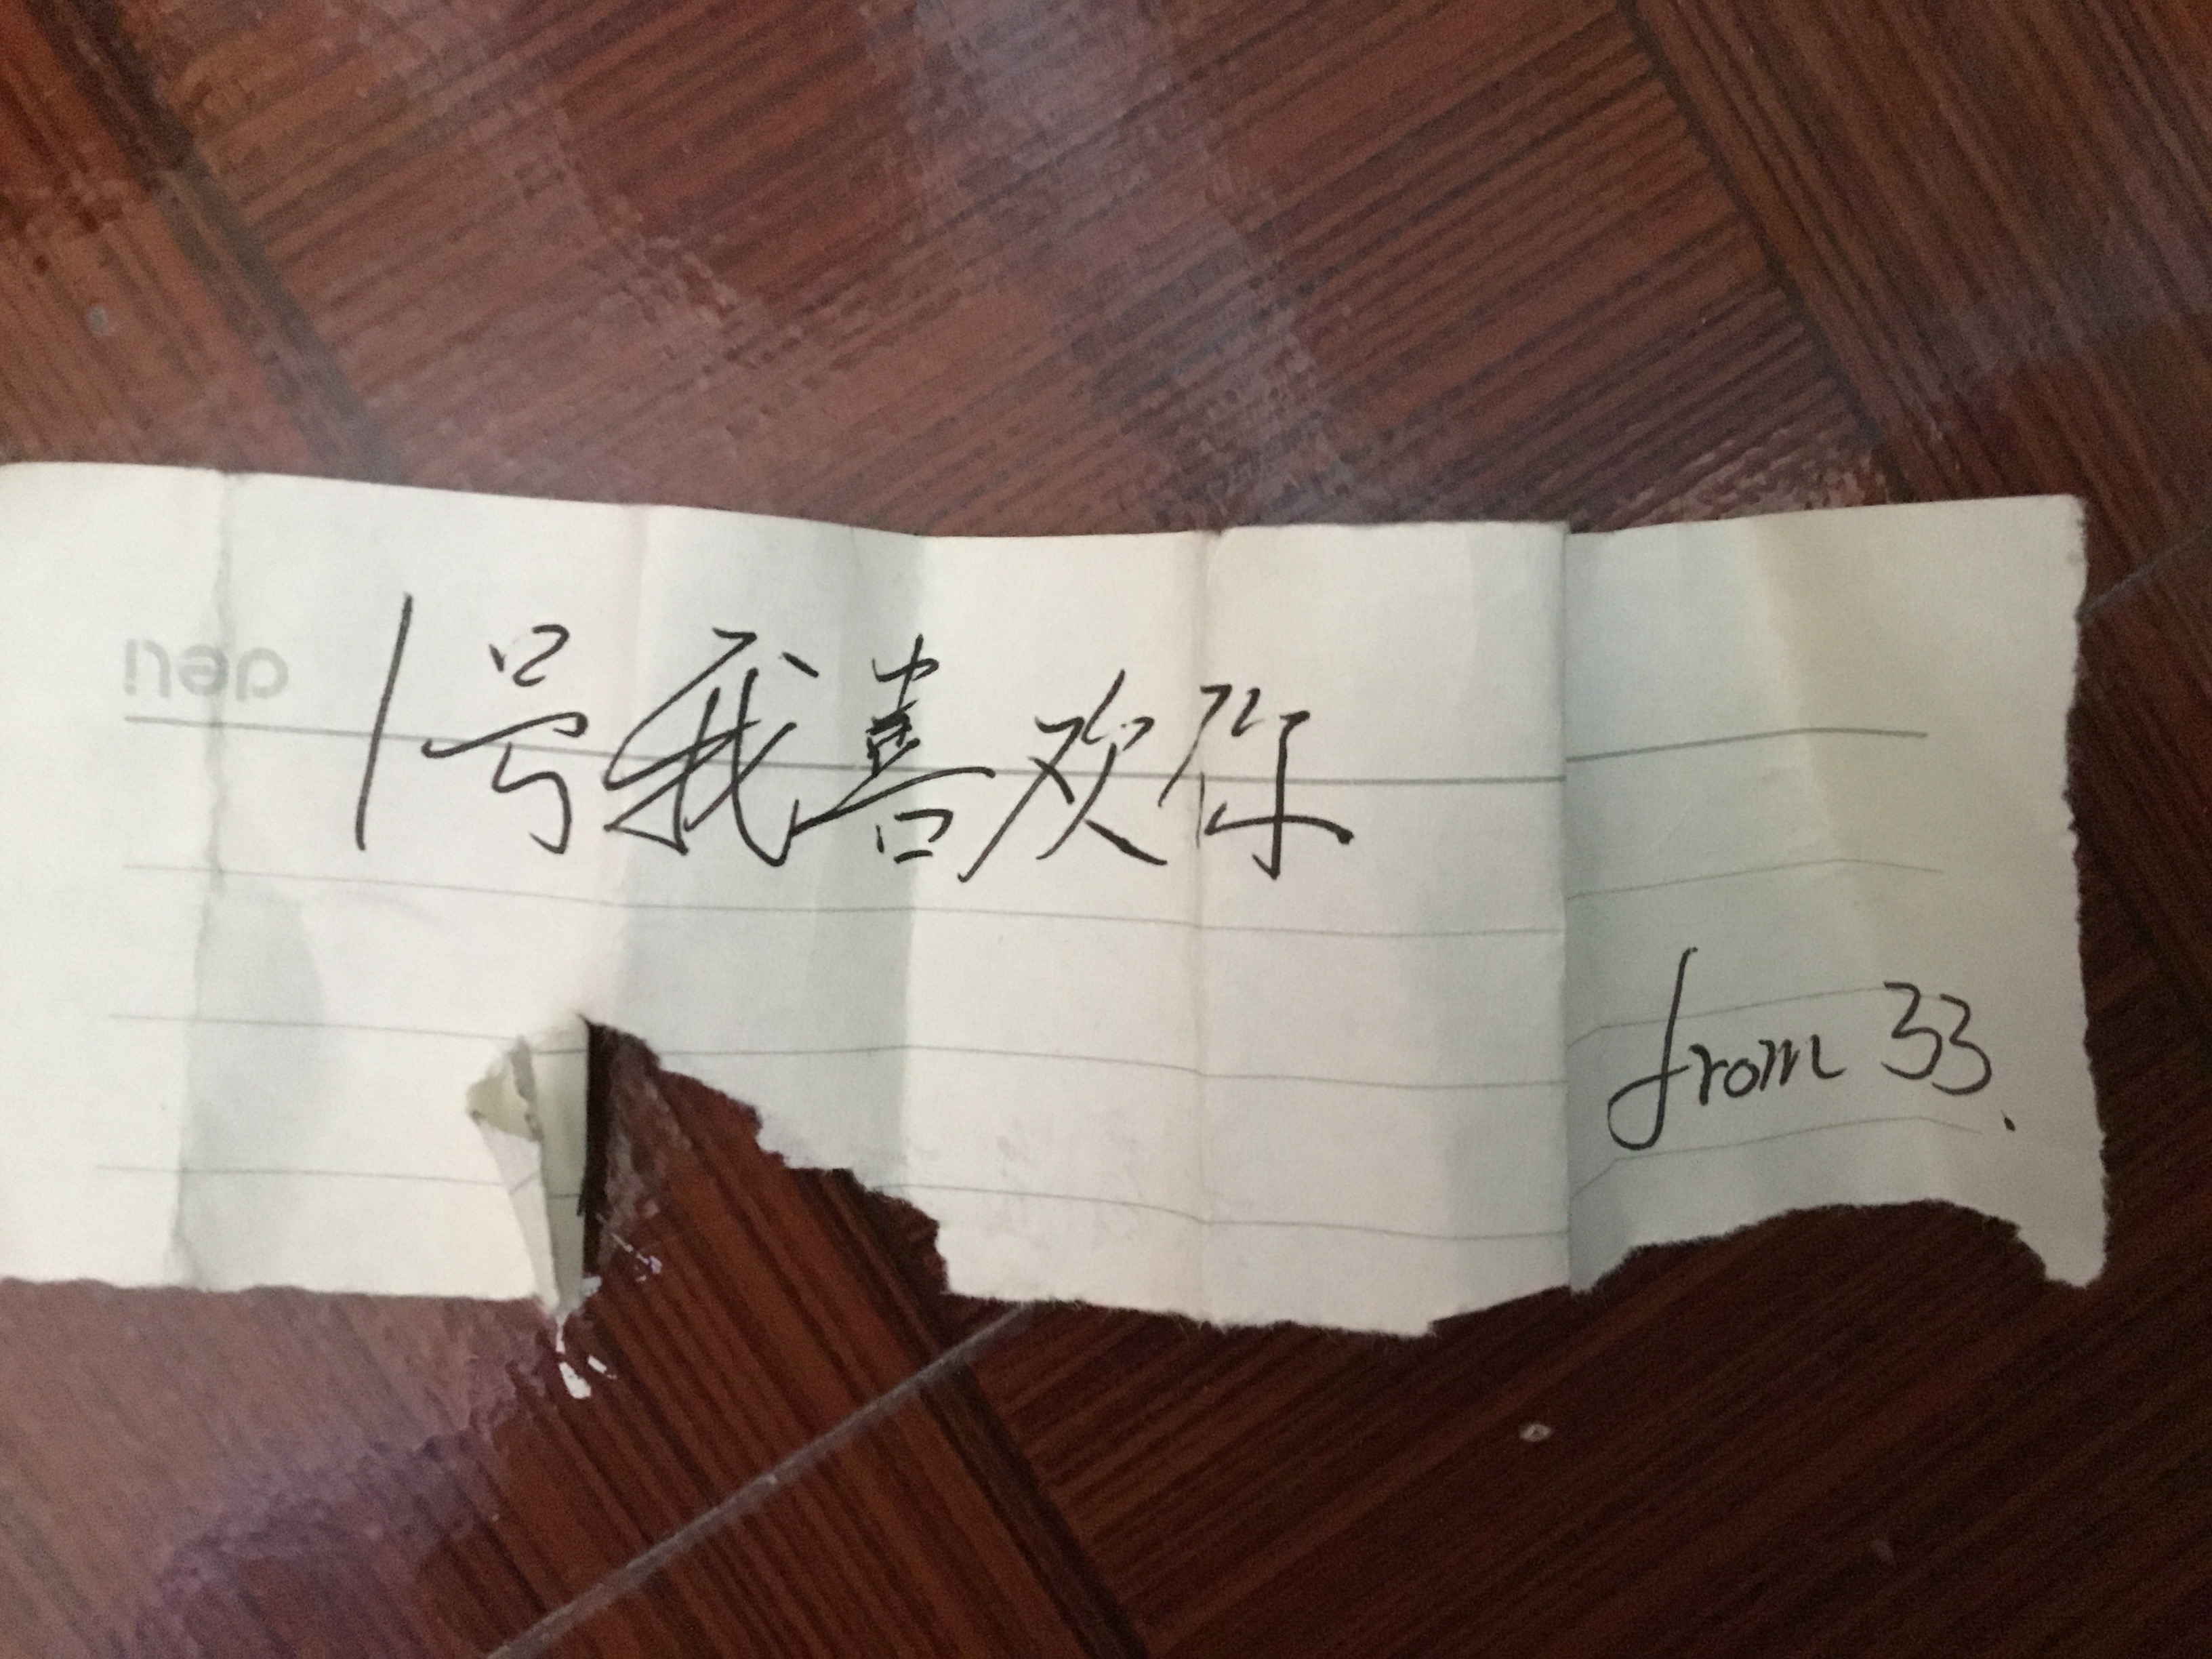 deli
1号我喜欢你
from 33.